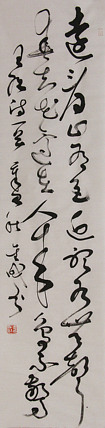 遠看山有色近聽水無聲
春去花還在人來鳥不驚
王維詩
書